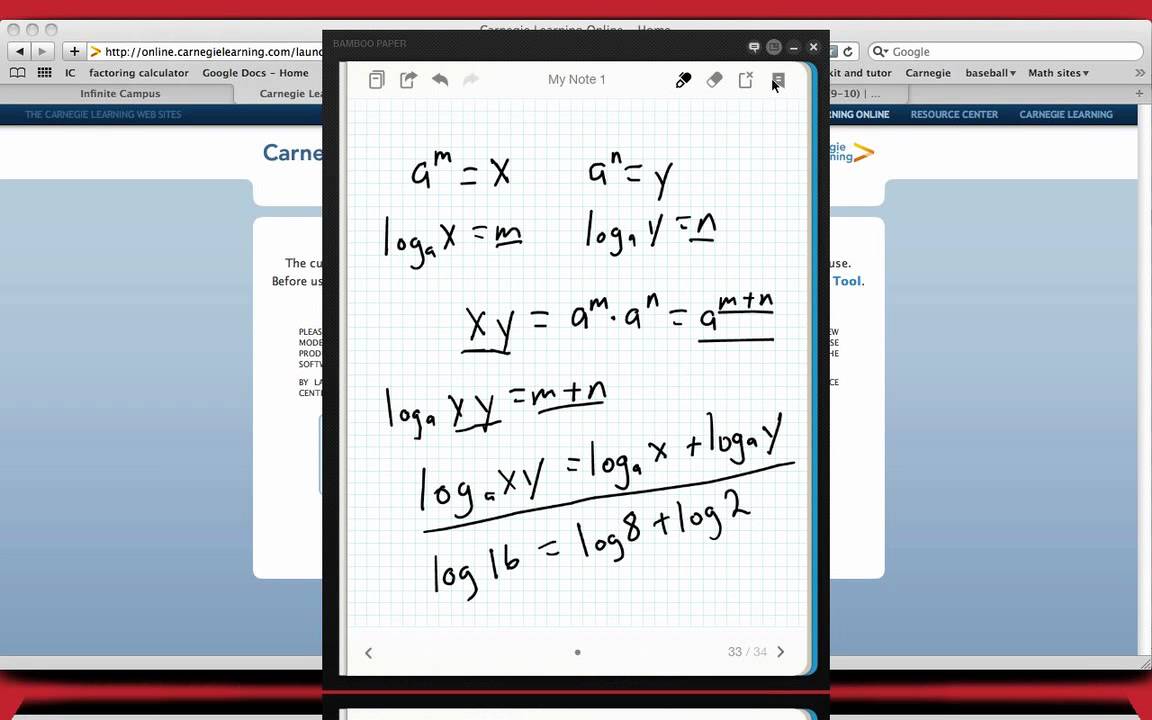 Carnegie Learning Online - Home
BAMBOO PAPER
http://online.carnegielearning.com/laun
Google
My Note 1
IC factoring calculator Google Docs - Home
kit and tutor Carnegie baseball Math sites
Infinite Campus
Carnegie Lea
9-10) | ...
THE CARNEGIE LEARNING WEB SITES
RNING ONLINE RESOURCE CENTER CARNEGIE LEARNING
Carne
gie
ning
The cu
use.
Before us
Tool.
PLEAS
MODE
PROD
SOFTW
BY LA
CENT
EW
SE
THE
CE
a^m = x a^n = y
log_a x = m log_a y = n
xy = a^m · a^n = a^{m+n}
log_a xy = m+n
log_a xy = log_a x + log_a y
log 16 = log 8 + log 2
33 / 34